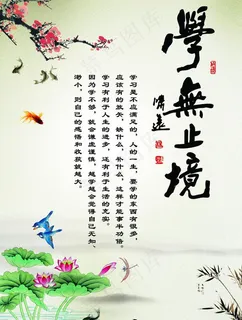 學無止境
學习是不应满足的，人的一生，要学的东西有很多，
应该有的放矢，缺什么，补什么，这样才能事半功倍。
学习有利于人生的进步，还有利于生活的充实。
因为学不够，就会谦虚谨慎，越学越会觉得自己无知、
渺小，则自己的感悟和收获就越大。